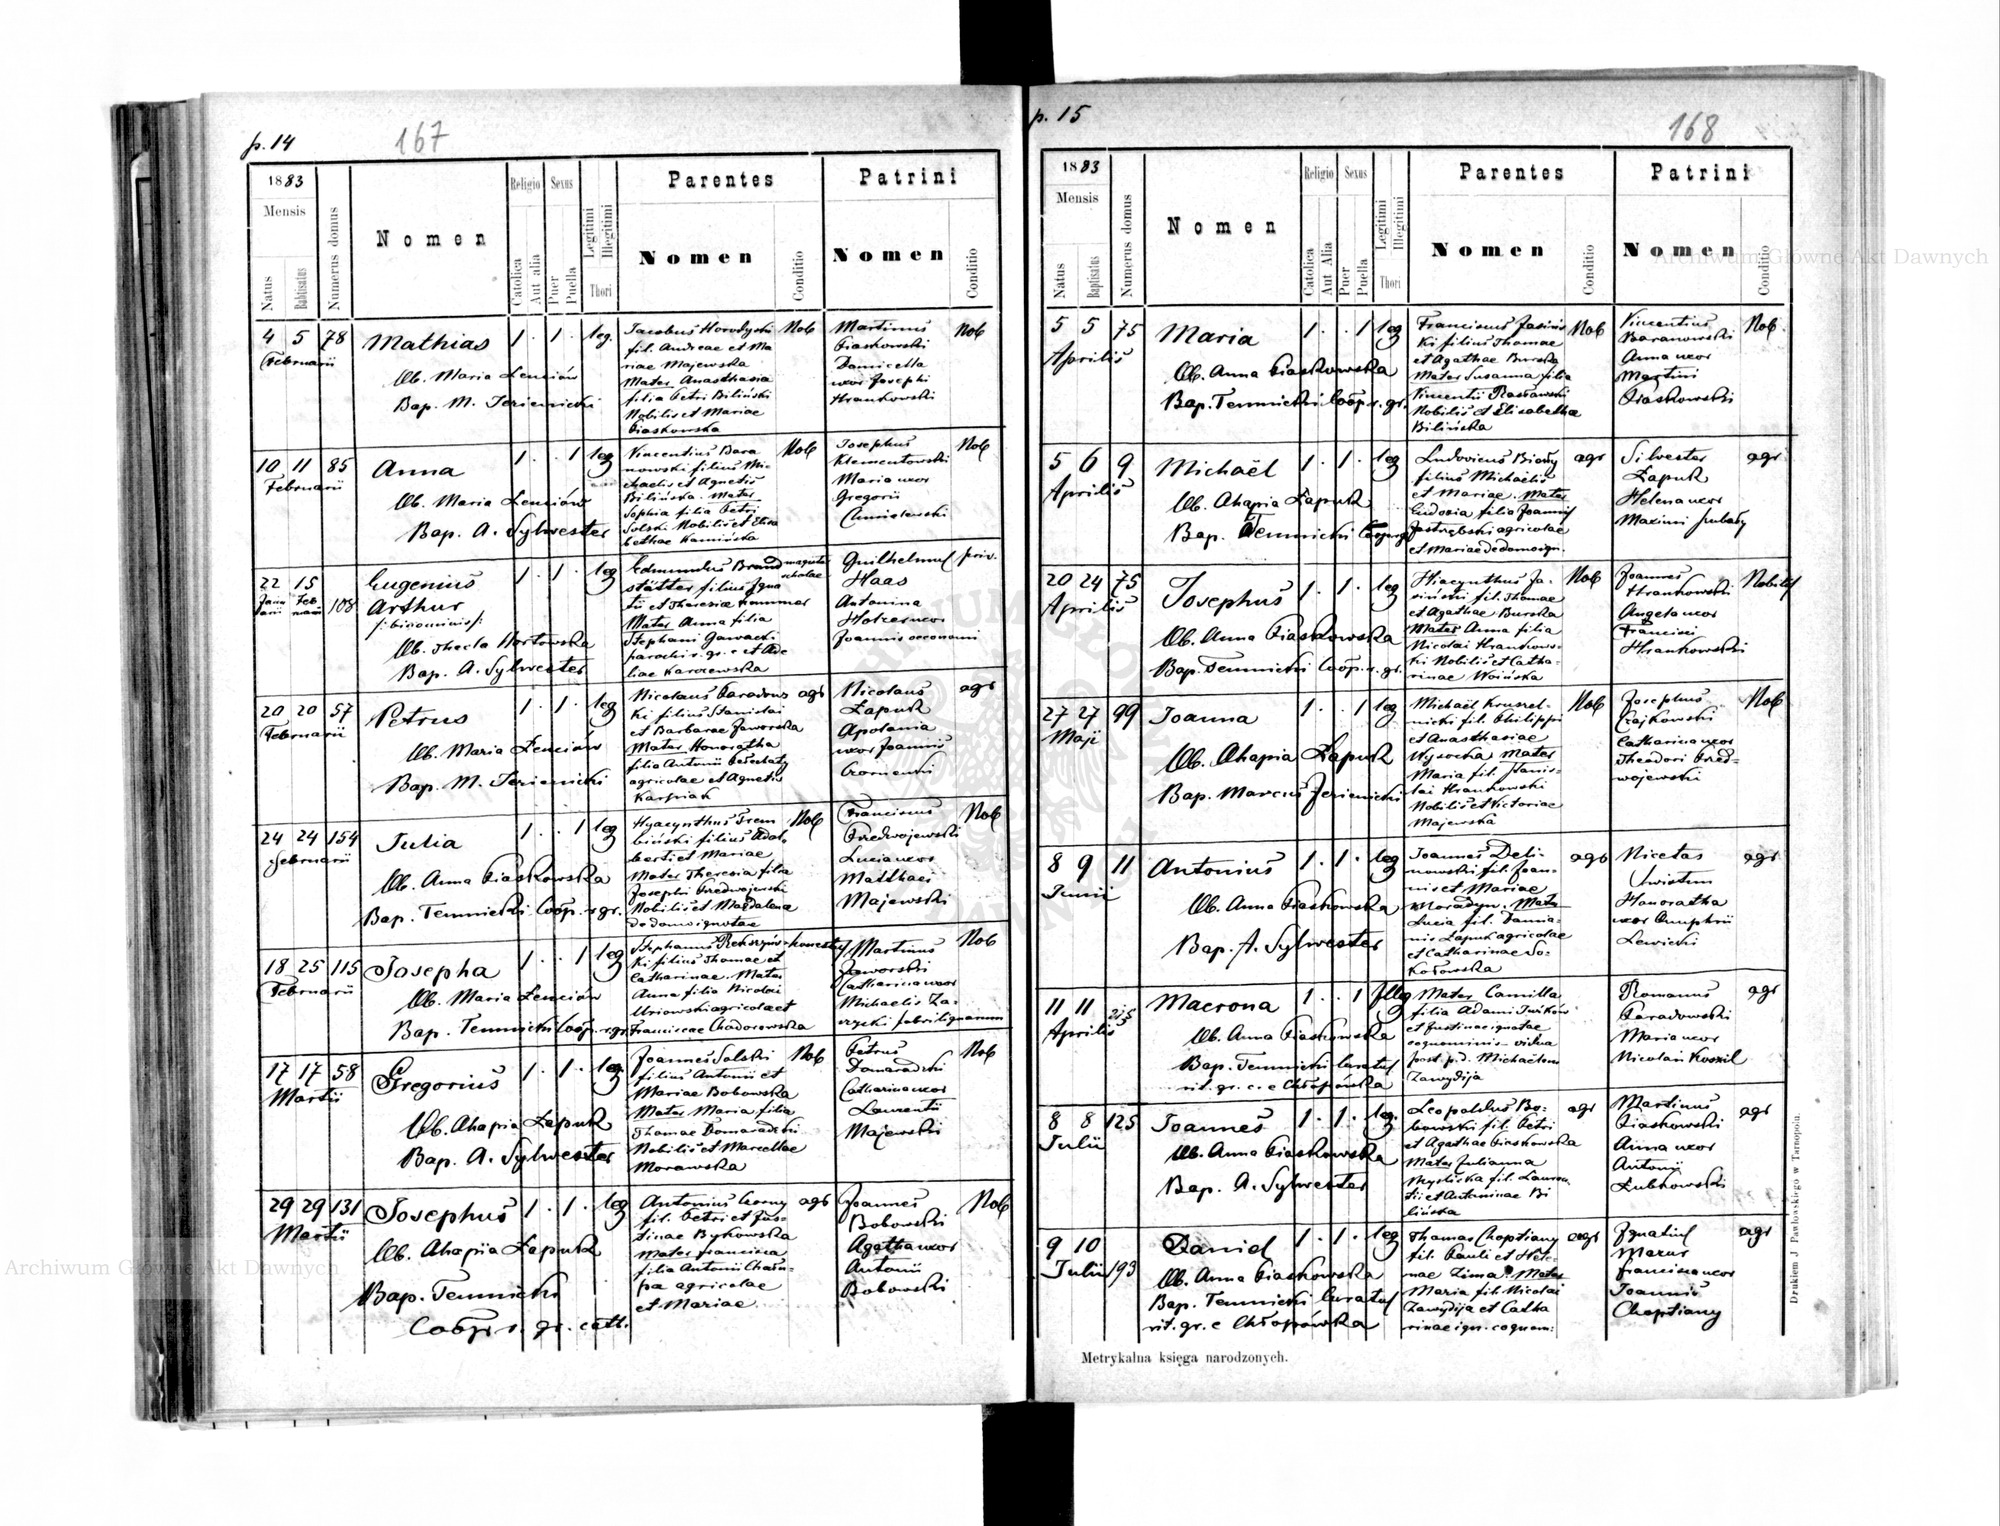 p. 14
167
1883
Mensis
Natus
Babtisatus
Numerus domus
Nomen
Religio
Catolica
Aut alia
Sexus
Puer
Puella
Legitimi
Illegitimi
Thori
Parentes
Nomen
Conditio
Patrini
Nomen
Conditio
4 5 78
Februarii
Mathias
Ob. Maria Lenciów
Bap. M.
1 . 1 . leg.
Jacobus Horodyski Nob
fil. Andreae et Ma
riae Majewska
Mater Anasthasia
filia Petri Biliński
Nobilis et Mariae
Piaskowska
Martinus Nob
Piaskowski
uxor Josephi
Hrankowski
10 11 85
Februarii
Anna
Ob. Maria Lenciów
Bap. A. Sylwester
1 . . 1 leg
Vincentius Bara Nob
nowski filius Mi
chaelis et Agnetis
Bilińska. Mater
Sophia filia Petri
Solski Nobilis et Elisa
bethae Kamińska
Josephus Nob
Klementowski
Maria uxor
Gregorii
22 15 108
Janu Feb
arii ruarii
Eugenius
Arthur
/:binominis/:
Ob. Thecla Hortowska
Bap. A. Sylwester
1 . 1 . leg
Edmundus Brand magister
stätter filius Igna scholae
tii et Theresia Hammer
Mater Anna filia
Stephani Gawacki
parochi r. gr. c et Ade
liae Karczewska
Guilhelmus priv.
Haas
Antonina
Joannis oeconomi
20 20 57
Februarii
Petrus
Ob. Maria Lenciów
Bap. M.
1 . 1 . leg
Nicolaus Paradows agr
ki filius Stanislai
et Barbarae Jaworska
Mater Honoratha
filia Antonii
agricolae et Agnetis
Karpiak
Nicolaus agr
Łapuk
Apolonia
uxor Joannis
24 24 154
Februarii
Julia
Ob. Anna Piaskowska
Bap. Temnicki Coop. r. gr.
1 . . 1 leg
Hyacynthus Trem Nob
biński filius Adal
berti et Mariae
Mater Theresia filia
Josephi Przedwojewski
Nobilis et Magdalena
de domo ignotae
Franciscus Nob
Przedwojewski
Lucia uxor
Matthaei
Majewski
18 25 115
Februarii
Josepha
Ob. Maria Lenciów
Bap. Temnicki Coop. r. gr.
1 . . 1 leg
ki filius Thomae et
Catharinae. Mater
Anna filia Nicolai
Uniowski agricolae et
Franciscae Chodorowska
Martinus Nob
Jaworski
Catharina uxor
Michaelis Za-
17 17 58
Martii
Gregorius
Ob. Ahapia Łapuk
Bap. A. Sylwester
1 . 1 . leg.
Joannes Solski Nob
filius Antonii et
Mariae Bobowska
Mater Maria filia
Thomae Domaradzki
Nobilis et Marcellae
Morawska
Petrus Nob
Domaradzki
Catharina uxor
Laurentii
Majewski
29 29 131
Martii
Josephus
Ob. Ahapia Łapuk
Bap. Temnicki
Coop r. gr. cath.
1 . 1 . leg
Antonius Czorny agr
fil. Petri et Jus-
tinae Bykowska
Mater Francisca
filia Antonii
pa agricolae
et Mariae
Joannes Nob
Bobowski
Agatha uxor
Antonii
Bobowski
p. 15
168
1883
Mensis
Natus
Baptisatus
Numerus domus
Nomen
Religio
Catolica
Aut Alia
Sexus
Puer
Puella
Legitimi
Illegitimi
Thori
Parentes
Nomen
Conditio
Patrini
Nomen
Conditio
5 5 75
Aprilis
Maria
Ob. Anna Piaskowska
Bap. Temnicki Coop. r. gr.
1 . . 1 leg
Franciscus Jasińs Nob
ki filius Thomae
et Agathae Burska
Mater Susanna filia
Vincentii
Nobilis et Elisabetha
Bilińska
Vincentius Nob.
Baranowski
Anna uxor
Martini
Piaskowski
5 6 9
Aprilis
Michaël
Ob. Ahapia Łapuk
Bap. Temnicki
1 . 1 . leg
Ludovicus Biały agr
filius Michaëlis
et Mariae. Mater
Eudosia filia Joannis
Jastrzębski agricolae
et Mariae de domo ign.
Silvester agr
Łapuk
Helena uxor
Maximi
20 24 75
Aprilis
Josephus
Ob. Anna Piaskowska
Bap. Temnicki Coop. r. gr.
1 . 1 . leg
Hiacynthus Ja- Nob
siński fil. Thomae
et Agathae Burska
Mater Anna filia
Nicolai Hrankows-
ki Nobilis et Catha-
rinae Woińska
Joannes Nobilis
Hrankowski
Angela uxor
Francisci
Hrankowski
27 27 99
Maji
Joanna
Ob. Ahapia Łapuk
Bap. Marcus
1 . . 1 leg
Michaël Kruszel- Nob
nicki fil. Philippi
et Anasthasiae
Wysocka Mater
Maria fil. Stanis-
lai Hrankowski
Nobilis et Victoriae
Majewska
Josephus Nob
Czajkowski
Catharina uxor
Theodori Przed-
wojewski
8 9 11
Junii
Antonius
Ob. Anna Piaskowska
Bap. A. Sylwester
1 . 1 . leg
Joannes Deli- agr
nowski fil. Joan-
nis et Mariae
Moradyn. Mater
Lucia fil. Damia-
nis Łapuk agricolae
et Catharinae So-
kołowska
Nicetas agr
Honoratha
uxor Onuphrii
Lewicki
11 11 215
Aprilis
Macrona
Ob. Anna Piaskowska
Bap. Temnicki Curatus
rit. gr. c. e Chłopówka
1 . . 1 Illeg
Mater Camilla
filia Adami
et Justinae ignotae
cognominis vidua
post p. d. Michaëlem
Zawydija
Romanus agr
Paradowski
Maria uxor
Nicolai Koszil
8 8 125
Julii
Joannes
Ob. Anna Piaskowska
Bap. A. Sylwester
1 . 1 . leg.
Leopoldus Bo- agr
bowski fil. Petri
et Agathae Piaskowska
Mater Julianna
Mysliska fil. Lauren
tii et Antoninae Bi
lińska
Martinus agr
Piaskowski
Anna uxor
Antonii
Łubkowski
9 10 193
Julii
Daniel
Ob. Anna Piaskowska
Bap. Temnicki Curatus
rit. gr. c Chłopówka
1 . 1 . leg
Thomas Choptiany agr
fil. Pauli et Hele-
nae Zima. Mater
Maria fil. Nicolai
Zawydija et Catha
rinae ign. cognom:
Ignatius agr
Mazur
Francisca uxor
Joannis
Choptiany
Metrykalna księga narodzonych.
Drukiem J Pawłowskiego w Tarnopolu.
Archiwum Główne Akt Dawnych
Archiwum Główne Akt Dawnych